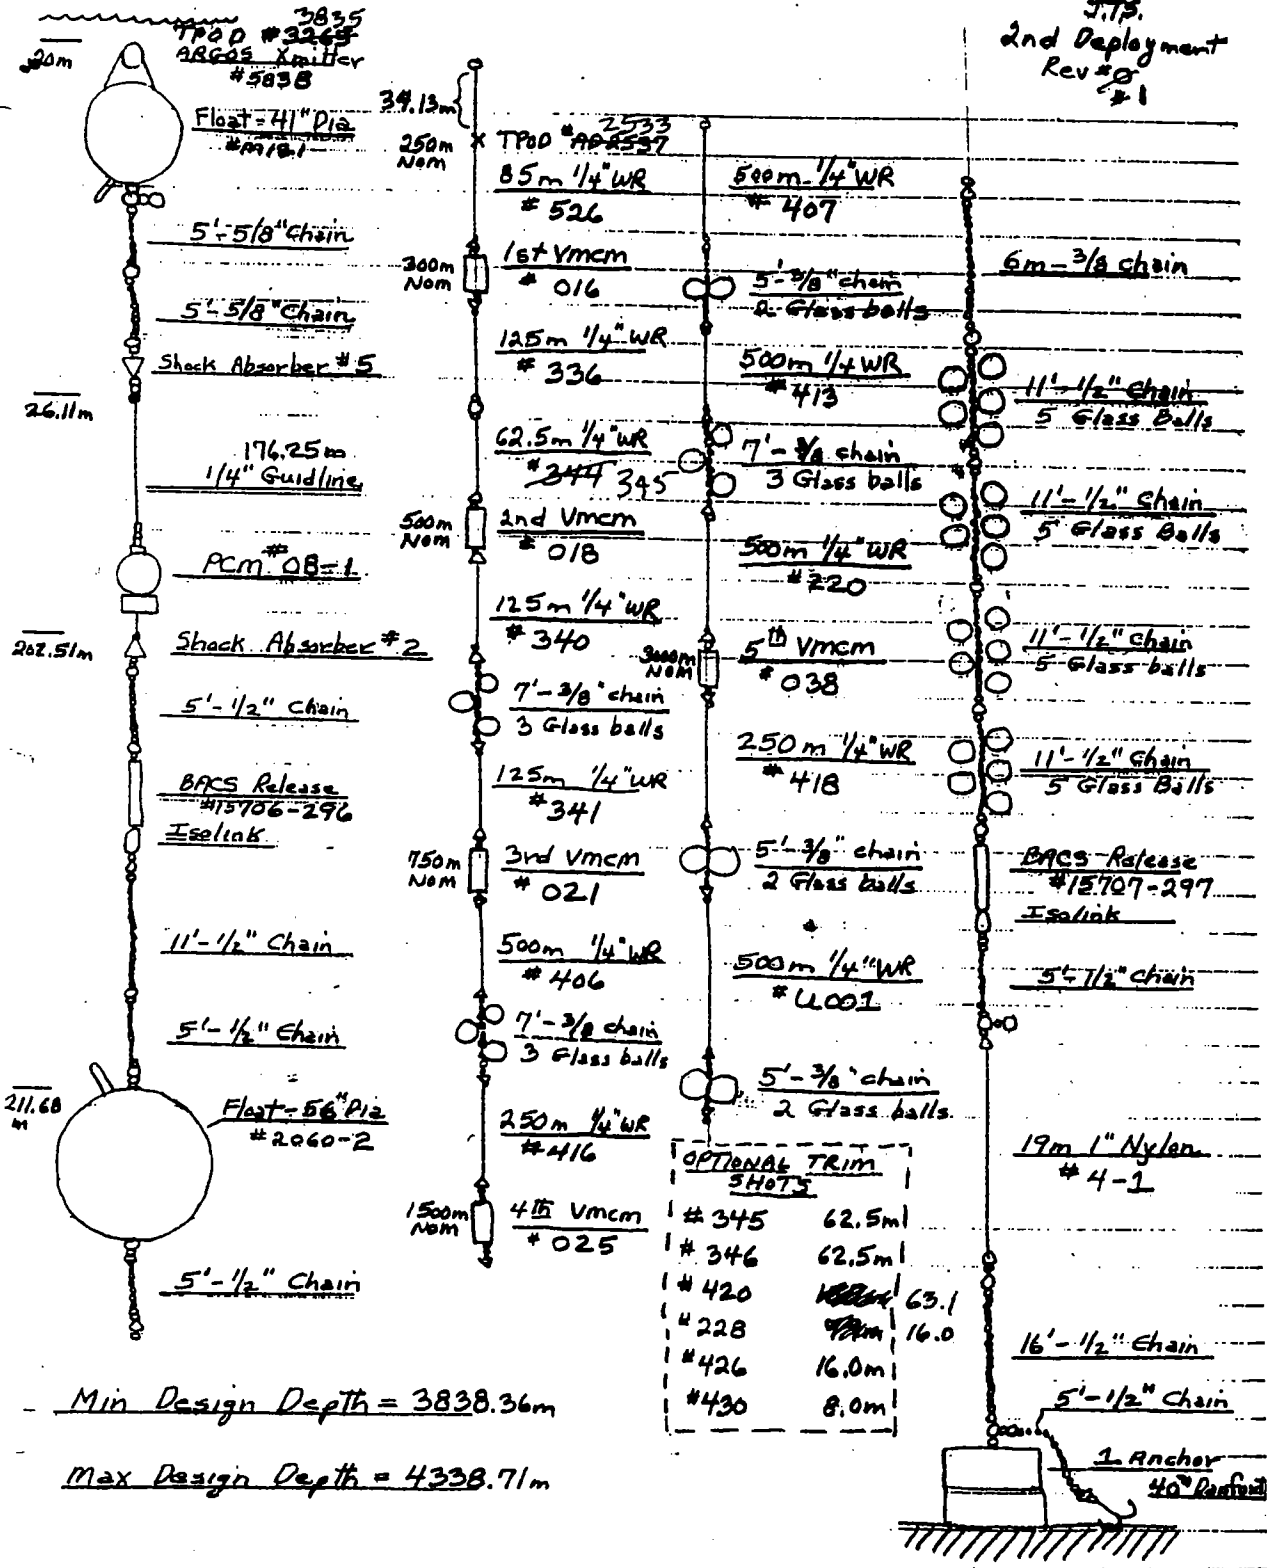 3835
TPOD #3265
ARGOS Xmitter
#5838
20m
Float-41" Dia
5'-5/8" Chain
5'-5/8" Chain
Shock Absorber #5
26.11m
176.25m
1/4" Guidline
PCM #08-1
202.51m
Shock Absorber #2
5'-1/2" Chain
BACS Release
#15706-296
Isolink
11'-1/2" Chain
5'-1/2" Chain
211.68
m
Float-56" Dia
#2060-2
5'-1/2" Chain
Min Design Depth = 3838.36m
Max Design Depth = 4338.71m
34.13m
250m
Nom
2533
TPOD #AD2537
85m 1/4" WR
# 526
300m
Nom
1st Vmcm
# 016
125m 1/4" WR
# 336
62.5m 1/4" WR
#344 345
500m
Nom
2nd Vmcm
# 018
125m 1/4" WR
# 340
7'-3/8" chain
3 Glass balls
125m 1/4" WR
#341
750m
Nom
3rd Vmcm
# 021
500m 1/4" WR
# 406
7'-3/8 chain
3 Glass balls
250m 1/4" WR
#416
1500m
Nom
4th Vmcm
# 025
500m-1/4" WR
# 407
5'-3/8" chain
2 Glass balls
500m 1/4 WR
# 413
7'-3/8 chain
3 Glass balls
500m 1/4" WR
#220
3000m
Nom
5th Vmcm
# 038
250m 1/4" WR
# 418
5'-3/8" chain
2 Glass balls
500m 1/4" WR
# U001
5'-3/8" chain
2 Glass balls
OPTIONAL TRIM
SHOTS
# 345 62.5m
# 346 62.5m
# 420 63.1
# 228 16.0
# 426 16.0m
#430 8.0m
J.T.B.
2nd Deployment
Rev #0
#1
6m-3/8 chain
11'-1/2" Chain
5 Glass Balls
11'-1/2" Chain
5 Glass Balls
11'-1/2" Chain
5 Glass balls
11'-1/2" Chain
5 Glass Balls
BACS Release
#15707-297
Isolink
5'-1/2" Chain
19m 1" Nylon
# 4-1
16'-1/2" Chain
5'-1/2" Chain
1 Anchor
40#